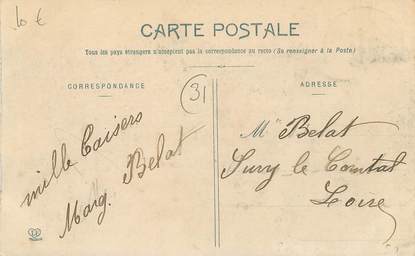 10 €
CARTE POSTALE
Tous les pays étrangers n'acceptent pas la correspondance au recto (Se renseigner à la Poste)
CORRESPONDANCE
31
mille Baisers
Marg. Belat
ADRESSE
M Belat
Sury le Comtal
Loire